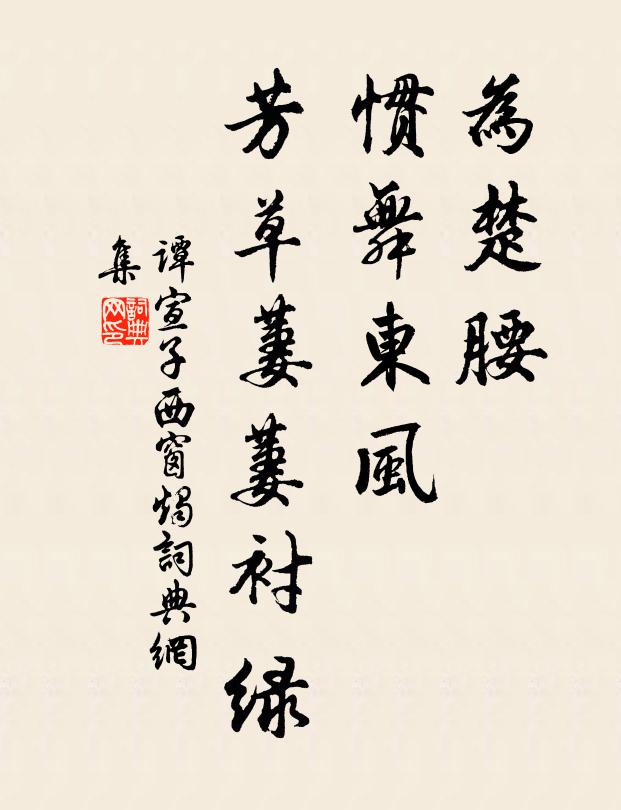 為楚腰
慣舞東風
芳草萋萋衬緑
譚宣子西窗燭詞典網
集
詞典网印